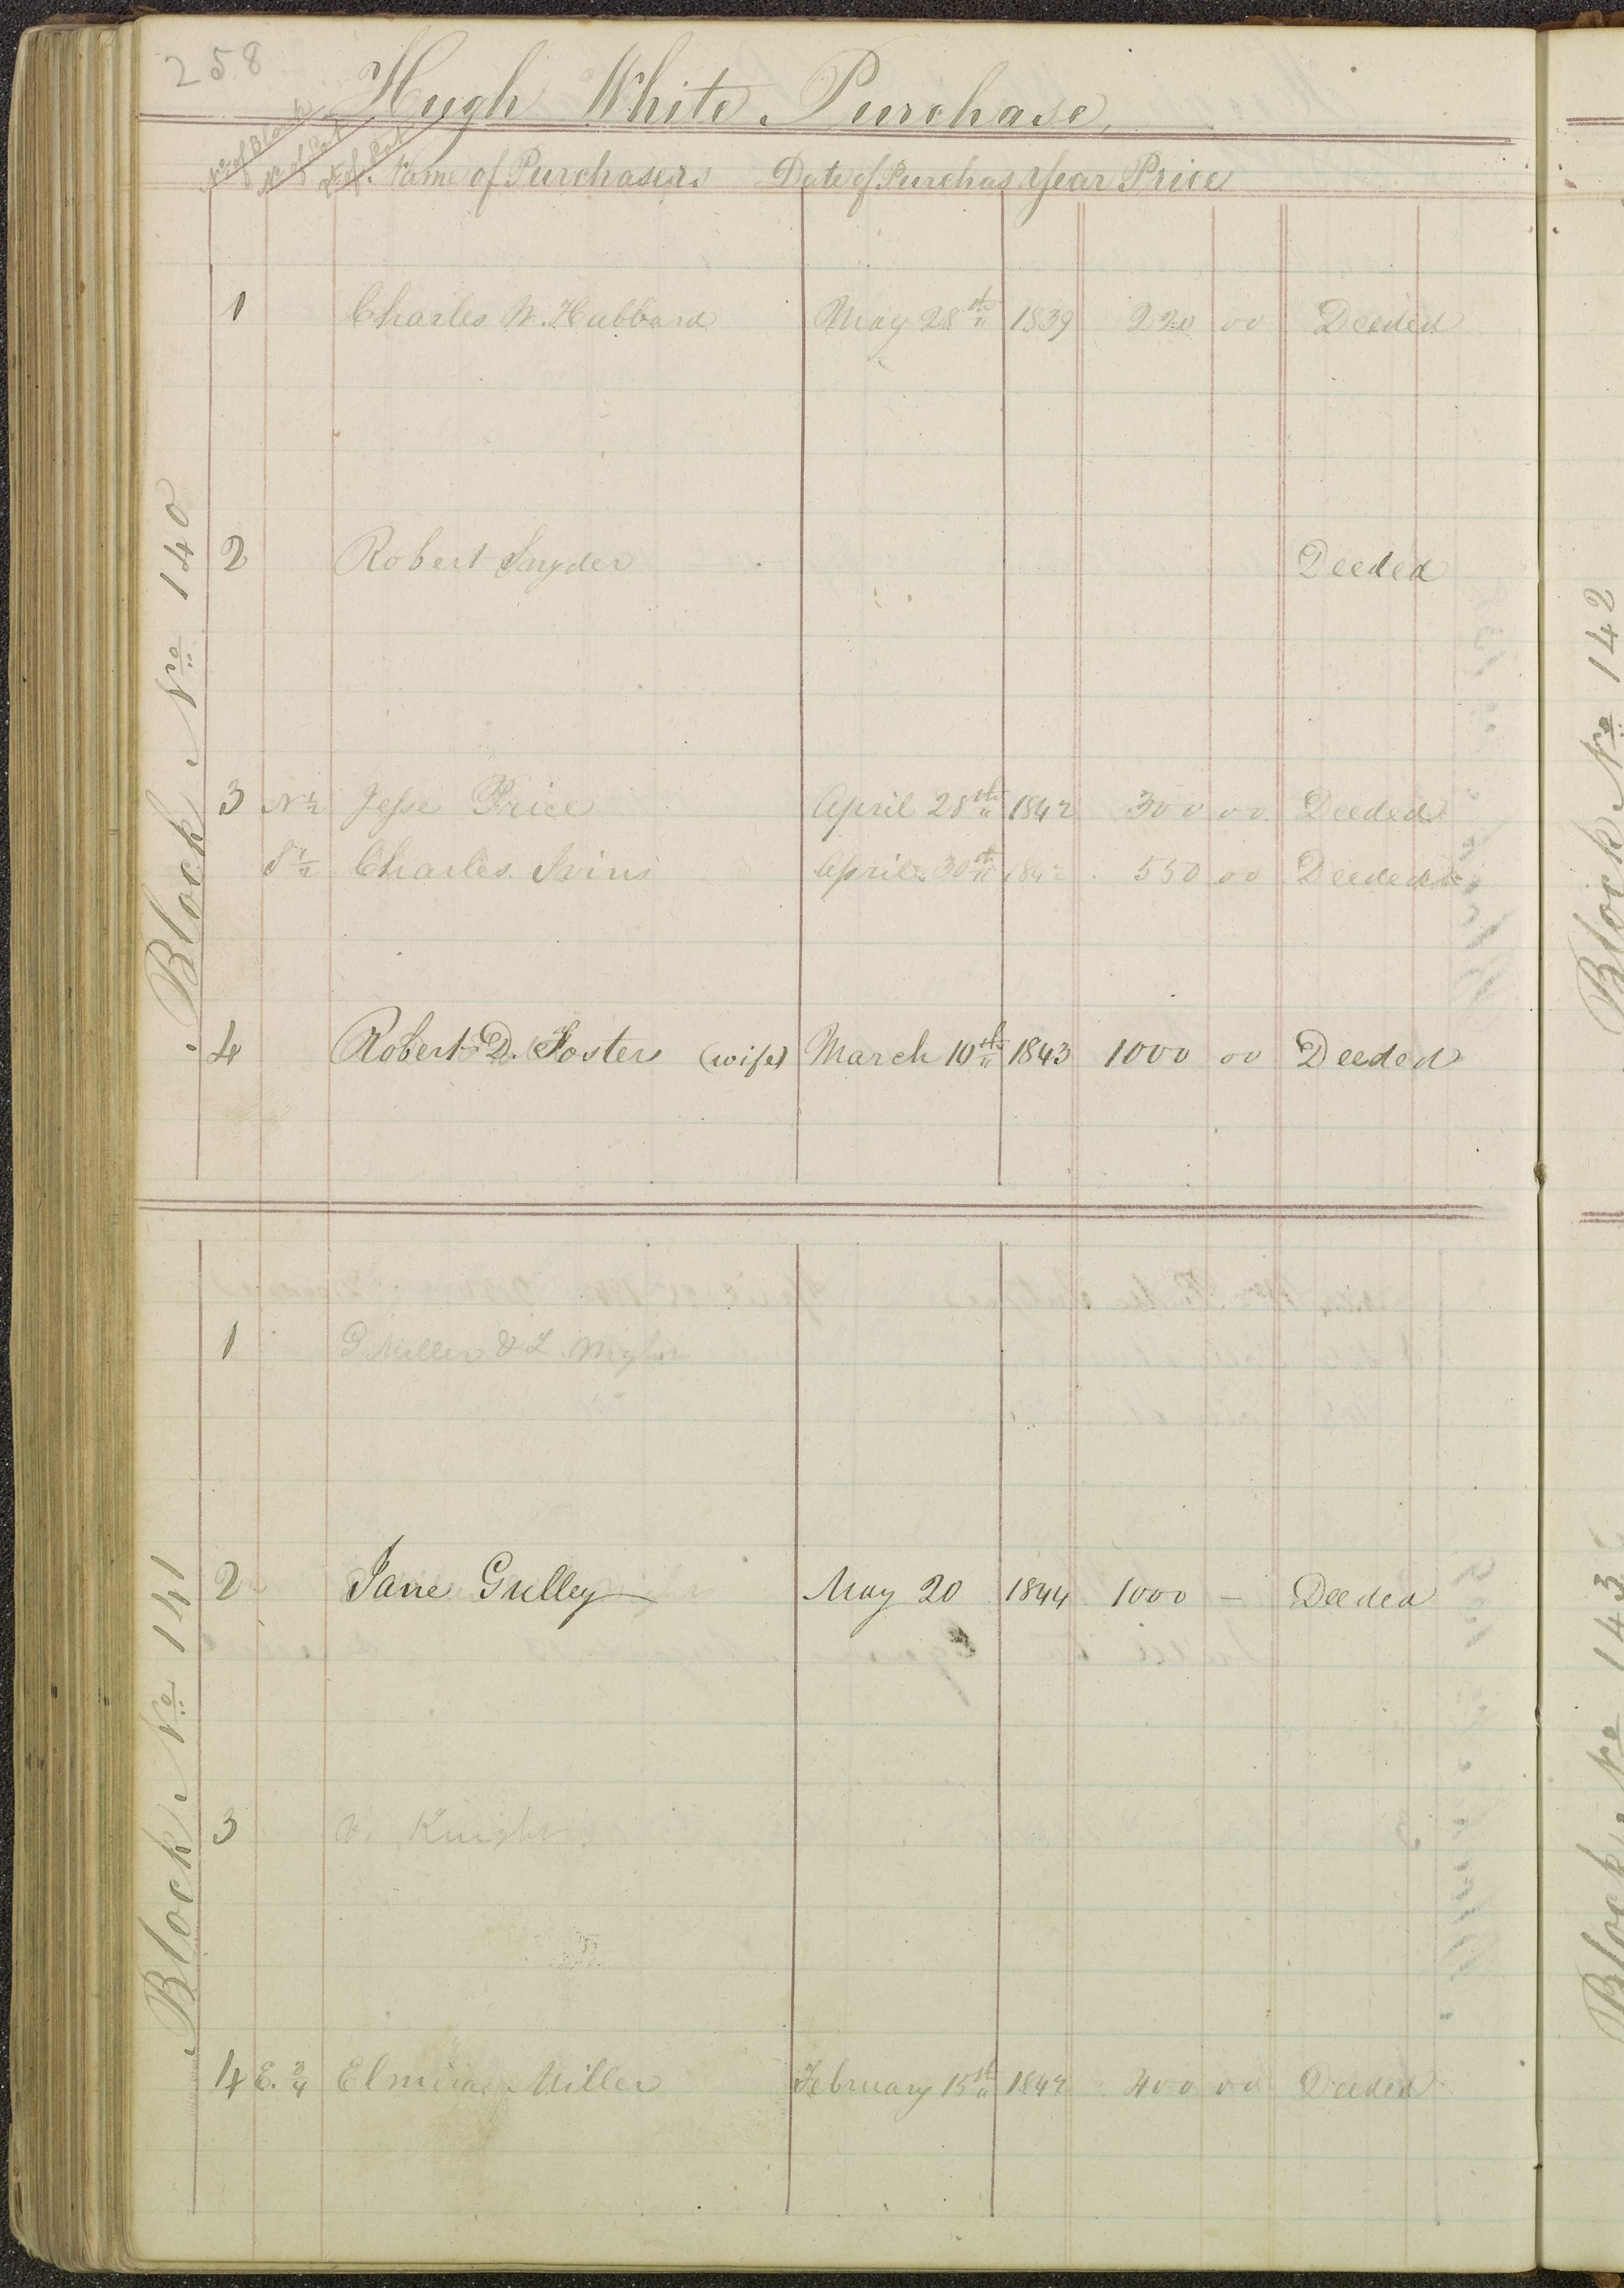 258
Hugh White Purchase
No of Block No of Lot Name of Purchasers Date of Purchas Year Price
Block No 140
1 Charles W. Hubbard May 28th 1839 220 00 Deeded
2 Robert Snyder Deeded
3 N 1/2 Jesse Price April 28th 1842 300 00 Deeded
S 1/2 Charles Ivins April 30th 1842 550 00 Deeded
4 Robert D. Foster (wife) March 10th 1843 1000 00 Deeded
Block No 141
1 G. Miller & L.
2 Jane Gulley May 20 1844 1000 — Deeded
3 V. Knight
4 E. 3/4 Elmira Miller February 15th 1842 400 00 Deeded
Block No 142
Block No 143